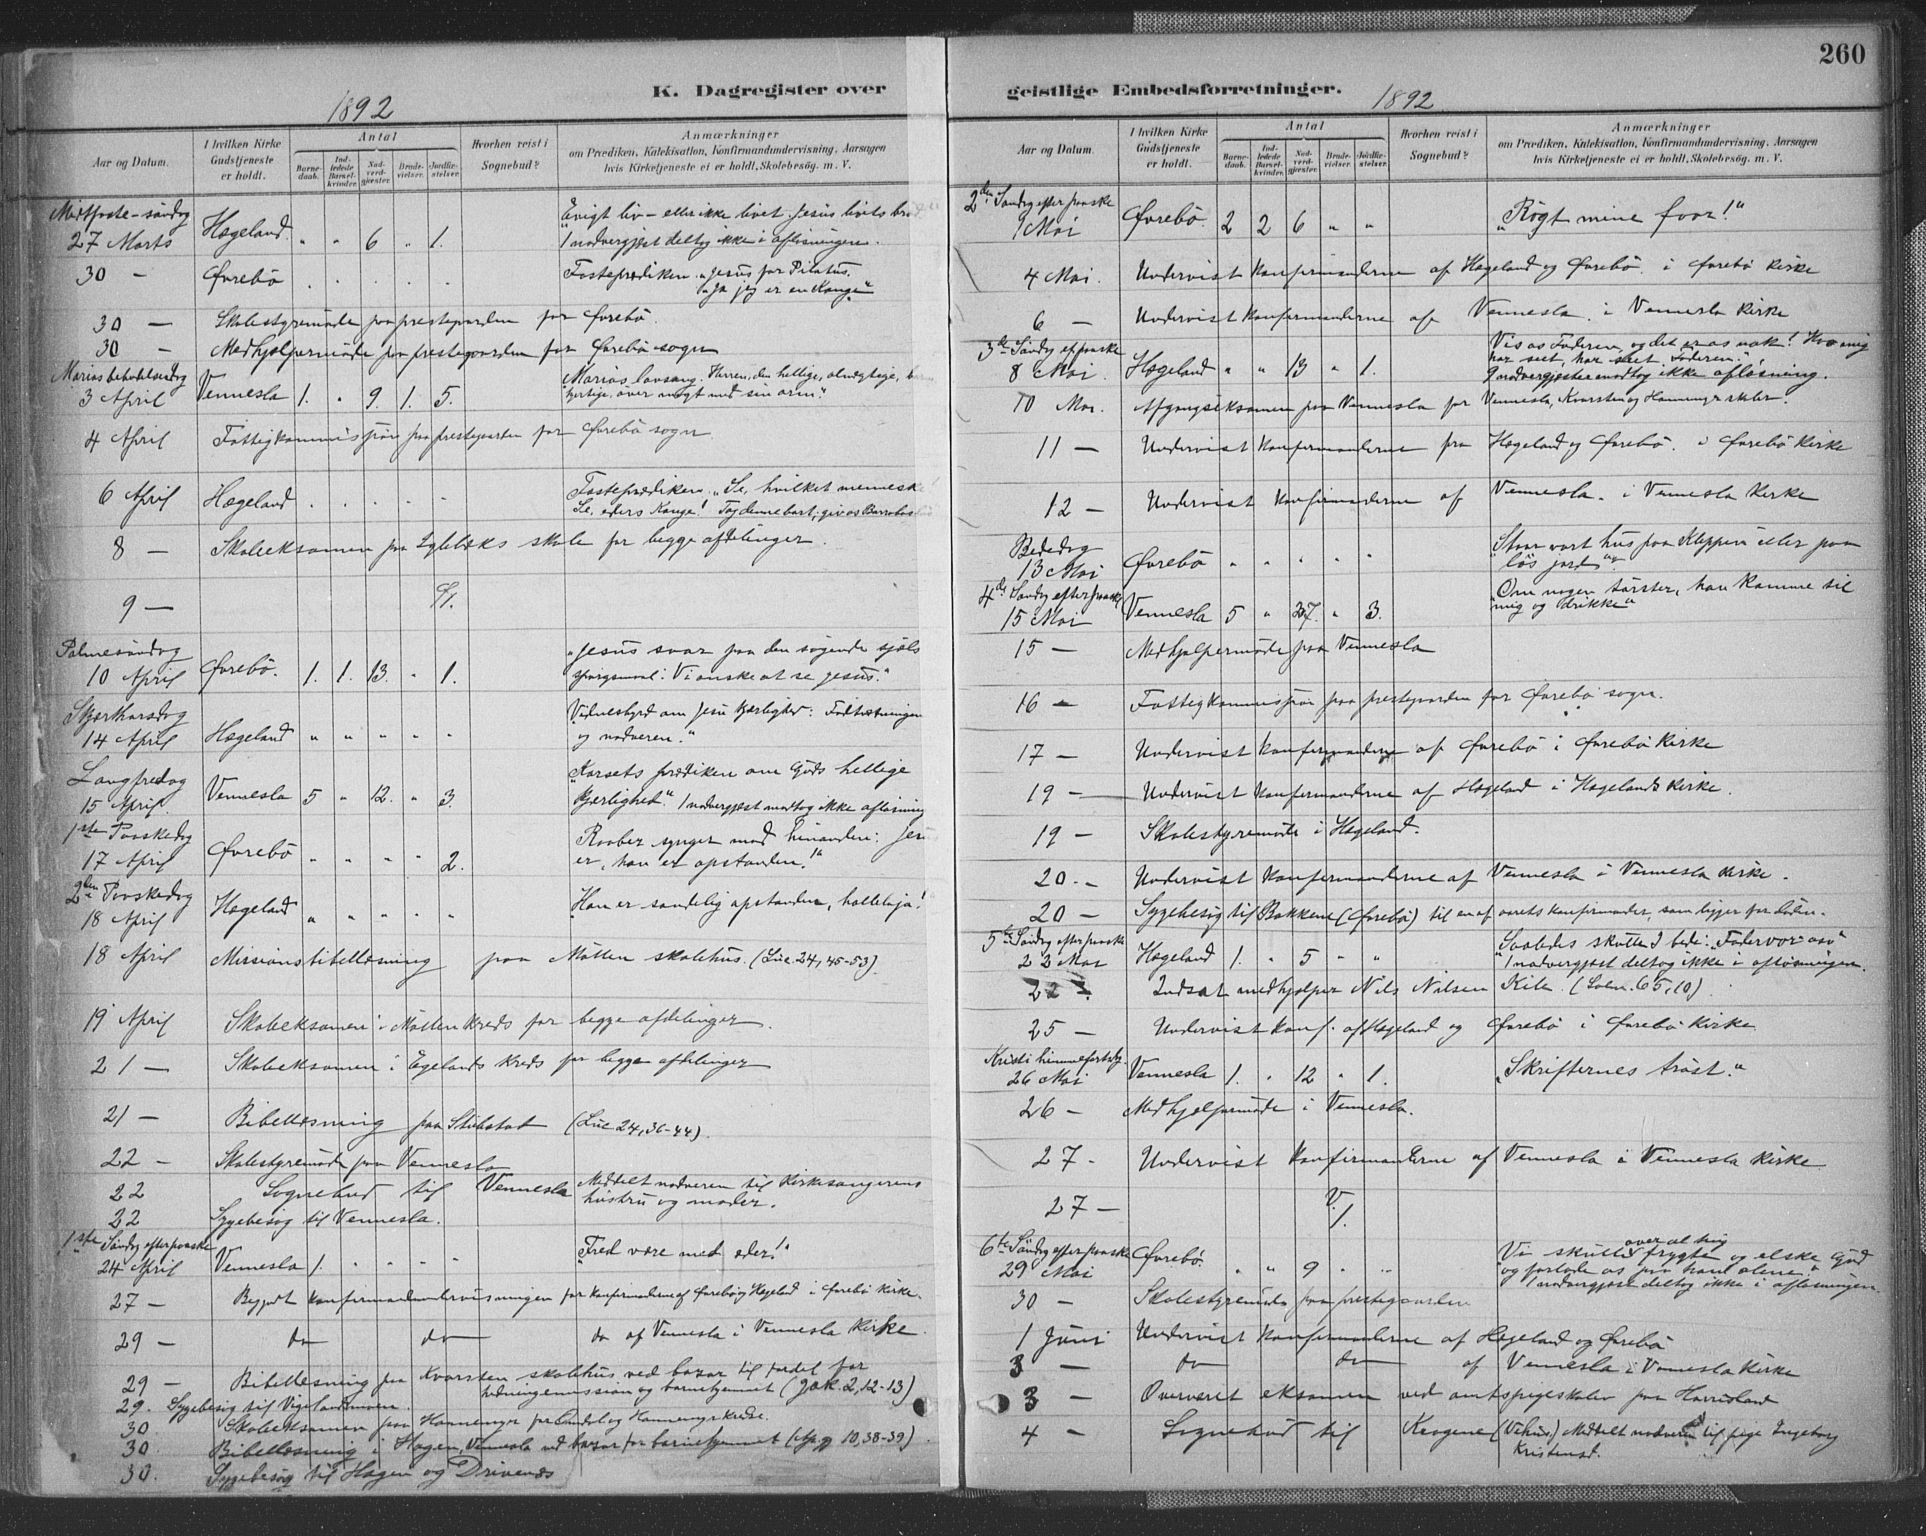 260
K. Dagregister over
1892
Aar og Datum.
I hvilken Kirke Gudstjeneste er holdt.
Antal
Barnedaab.
Indledede Barselkvinder.
Nadverdgjester.
Brudevielser.
Jordfæstelser.
Hvorhen reist i Sognebud?
Anmærkninger
om Prædiken, Katekisation, Konfirmandundervisning, Aarsagen
hvis Kirketjeneste ei er holdt, Skolebesøg. m. V.
Midtfaste-söndag
27 Marts Hægeland " " 6 " 1. Evigt liv - eller ikke livet. Jesus livets
1 nadvergjest deltog ikke i afløsningen.
30 - Øvrebö . . . . . Fasteprædiken. "Jesus for Pilatus.
"Ja jeg er en Konge"
30 - Skolestyremöde paa prestegaarden for Øvrebö.
30 - Medhjælpermöde paa prestegaarden for Øvrebö sogn
Marias bebudelsesdag
3 April Vennesla 1. " 9. 1. 5. "Marias lovsang. Herren, den hellige, almægtige,
över magt med sin arm."
4 April Fattigkommissjon paa prestegaarden for Øvrebö sogn
6 April Hægeland . . . . . Fasteprædiken. "Se, hvilket menneske
Se, eders Konge! Tag denne bort; giv os Barrabas
8 - Skoleeksamen paa Eglebæks skole for begge afdelinger.
9 - 1.
Palmesöndag
10 April Øvrebö. 1. 1. 13. " 1. "Jesus svar paa den søgende sjæls
spørgsmaal: Vi ønske at se Jesus."
Skjærthorsdag
14 April Hægeland " " " " " Vidnesbyrd om Jesu kjærlighed: Fodtvætningen
og nadveren."
Langfredag
15 April Vennesla 5 " 12. " 3. "Korsets prædiken om Guds hellige
Kjærlighed." 1 nadvergjest modtog ikke afløsning
1ste Paaskedag
17 April Øvrebö " " " " 2. Raaber synger mod hinanden:
er, han er opstanden!"
2den Paaskedag
18 April Hægeland " " " " " "Han er sandelig opstanden, halleluja!
18 April Missionsbibellæsning paa Mölten skolehus. (Luc. 24, 45-53).
19 April Skoleeksamen i Mölten kreds for begge afdelinger.
21 - Skoleeksamen i Egelands kreds for begge afdelinger
21 - Bibellæsning paa Stubstad (Luc 24, 36-44).
22 - Skolestyremöde paa Vennesla
22 Sognebud til Vennesla Meddelt nadveren til Kirkesangerens
hustru og moder.
22 Sygebesög til Vennesla.
1ste Söndag efter paaske
24 April Vennesla 1. " " " " "Fred være med eder!"
27 - Begyndt konfirmandundervisningen for konfirmanderne af Øvrebö og Hægeland i Øvrebö kirke.
29 - do do do af Vennesla i Vennesla kirke.
29 - Bibellæsning paa Kvarsten skolehus ved bazar til fordel for
hedningemission og barnehjemmet (Jak. 2, 12-13)
29. Sygebesög til Vigelandsmoen.
30 Skoleeksamen paa Honnemyr for Lindel og Honnemyrskreds.
30. Bibellæsning i Hagen, Vennesla ved bazar for barnehjemmet (Apg 10, 38-39).
30. Sygebesög til Hagen og Drivenes
geistlige Embedsforretninger.
1892
Aar og Datum.
I hvilken Kirke Gudstjeneste er holdt.
Antal
Barnedaab.
Indledede Barselkvinder.
Nadverdgjester.
Brudevielser.
Jordfæstelser.
Hvorhen reist i Sognebud?
Anmærkninger
om Prædiken, Katekisation, Konfirmandundervisning. Aarsagen
hvis Kirketjeneste ei er holdt, Skolebesøg. m. V.
2den Søndag efter paaske
1 Mai Øvrebö 2 2 6 " " "Røgt mine faar!"
4 Mai. Undervist konfirmanderne af Hægeland og Øvrebö. i Øvrebö kirke
6 - Undervist konfirmanderne af Vennesla i Vennesla kirke
3de Söndag ef. paaske
8 Mai. Hægeland " " 13 " 1. Vis os Faderen, og det er os nok! Hvo mig
har seet, har seet Faderen."
9 nadvergjester modtog ikke afløsning.
10 Mai. Afgangseksamen paa Vennesla for Vennesla, Kvarsten og Honnemyr skoler.
11 - Undervist konfirmanderne fra Hægeland og Øvrebö. i Øvrebö kirke
12 - Undervist konfirmanderne af Vennesla. i Vennesla kirke
Bededag
13 Mai Øvrebö " " " " " "Staar vort hus paa Klippen eller paa
løs jord"
4de Söndag efter paaske
15 Mai Vennesla 5 " 37. " 3. Om nogen tørster, han komme til
mig og drikke"
15 - Medhjælpermöde paa Vennesla
16 - Fattigkommissjon paa prestegaarden for Øvrebö sogn.
17 - Undervist konfirmanderne af Øvrebö i Øvrebö kirke
19 - Undervist konfirmanderne af Hægeland i Hægelands kirke.
19 - Skolestyremöde i Hægeland.
20. - Undervist konfirmanderne af Vennesla i Vennesla kirke.
20 - Sygebesög til Bakkene (Øvrebö) til en af aarets konfirmander, som ligger for døden.
5te Söndag efter paaske
22 Mai Hægeland 1. " 5 " " "Saaledes skulle I bede: "Fadervor" osv"
1 nadvergjest deltog ikke i afløsningen.
22 - Indsat medhjælper Nils Nilsen Kile. (Salm. 65, 10).
25 - Undervist konf. af Hægeland og Øvrebö i Øvrebö kirke
Kristi himmelfartsdg.
26 Mai Vennesla 1. " 12 " 1. "Skrifternes tröst."
26 - Medhjælpermöde i Vennesla.
27 - Undervist konfirmanderne af Vennesla i Vennesla kirke
27 - V. 1.
6te Söndag efter paaske
29 Mai Øvrebö. " " 9 " " Vi skulle over al ting frygte og elske Gud
og forlade os paa ham alene."
1 nadvergjest deltog ikke i afløsningen.
30 - Skolestyremöde paa prestegaarden
1 Juni Undervist konfirmanderne af Hægeland og Øvrebö
3 - do do af Vennesla i Vennesla kirke
3 - Oververet eksamen ved amtspigeskolen paa Haarisland
4 - Sognebud til Krogene (Vehus) Meddelt nadveren til pige Ingeborg
Kristensd.